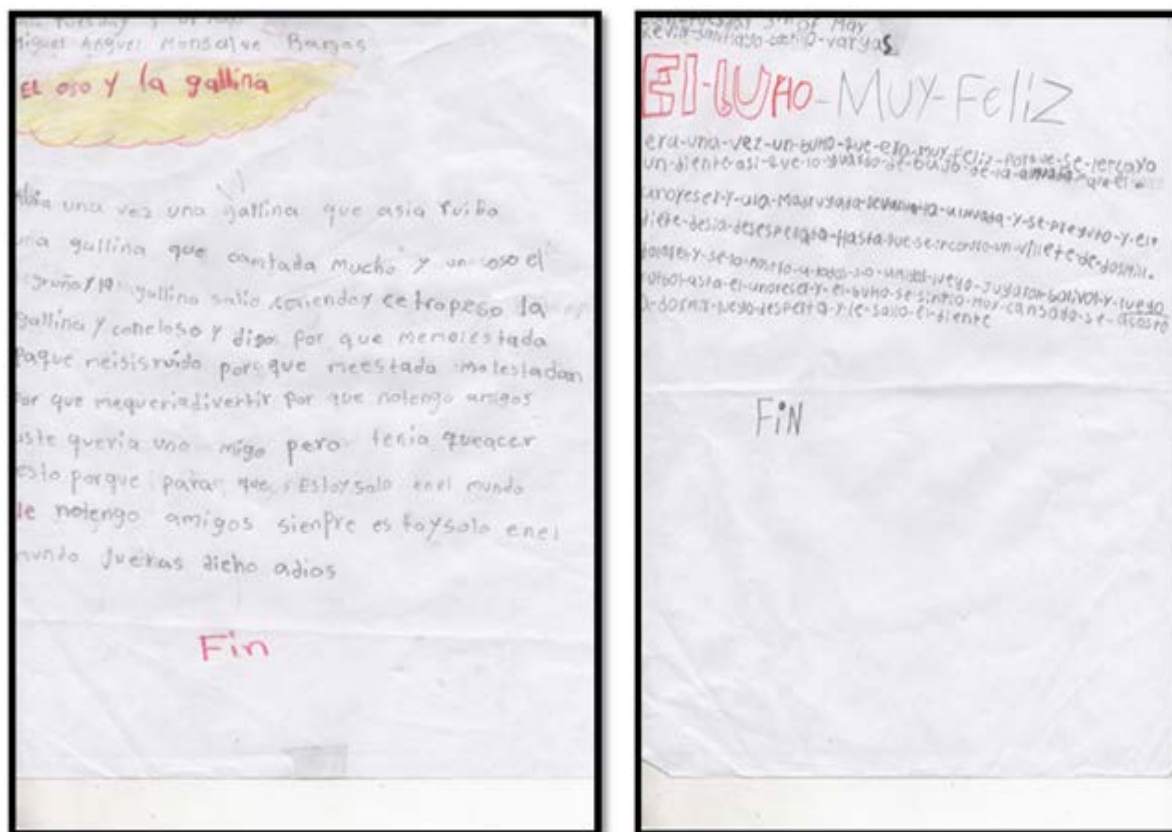 Tuesday
Miguel Anguel Monsalve Bargas
EL oso y la gallina
una vez una gallina que asia ruido
una gallina que cantada mucho y un oso el
gruño y la gallina salio coriendo y ce tropeso la
gallina y coneloso y dijo por que memolestada
paque meisisruido por que meestada molestadan
por que mequeriadivertir por que notengo amigos
uste queria uno migo pero tenia queacer
esto porque para que Estoysolo enel mundo
notengo amigos sienpre estoysolo enel
mundo dicho adios
Fin
of May
Kevin-santiago-vargas
El-BUHO-MUY-Feliz
era-una-vez-un-buho-que-era-muy-feliz-porque-se-lercayo
un-diente-asi-que-lo-guardo-de-bajo-de-la-que-el
unoreser-y-una-Madrugada-levanto-la-almuada-y-se-pregunto-y-el
diete-desia-desesperata-Hasta-que-se-incontro-un-villete-de-dosmil
y-se-lo-mostro-a-todos-sus-amigos-luego-jugaron-bolivol-y-luego
futbol-asta-el-unoreser-y-el-buho-se-sintio-muy-cansado-se-acosto
a-dormir-luego-desperta-y-le-salio-el-diente
FiN